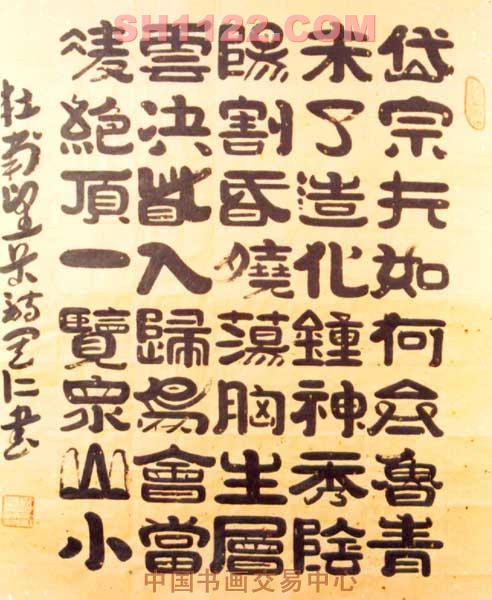 SH1122.COM
岱宗夫如何齊魯青
未了造化鍾神秀陰
陽割昏曉蕩胸生層
雲決眥入歸鳥會當
凌絕頂一覽衆山小
杜甫望岳詩 仁書
中国书画交易中心